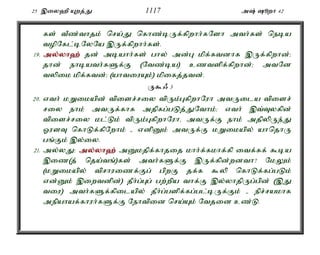 25 இலைஹி யுறத்து 1117 அஷ் ஷூறா 42
கள் வீண்வாதம் செய்து கொண்டிருக்கிறார்களோ அவர்கள் நெடிய
வழிகேட்டிலேயே இருக்கிறார்கள்.
19. அல்லாஹ் தன் அடியார்கள் பால் அன்பு மிக்கவனாக இருக்கிறான்;
தான் நாடியவர்களுக்கு (வேண்டிய) உணவளிக்கிறான்; அவனே
வலிமை மிக்கவன்; (யாவரையும்) மிகைத்தவன்.
ருகூஃ 3
20. எவர் மறுமையின் விளைச்சலை விரும்புகிறாரோ அவருடைய விளைச்
சலை நாம் அவருக்காக அதிகப்படுத்துவோம்: எவர் இவ்வுலகின்
விளைச்சலை மட்டும் விரும்புகிறாரோ, அவருக்கு நாம் அதிலிருந்து
ஓரளவு கொடுக்கிறோம் - எனினும் அவருக்கு மறுமையில் யாதொரு
பங்கும் இல்லை.
21. அல்லது: அல்லாஹ் அனுமதிக்காததை மார்க்கமாக்கி வைக்கக் கூடிய
இணை(த் தெய்வங்)கள் அவர்களுக்கு இருக்கின்றனவா? மேலும்
(மறுமையில் விசாரணைக்குப் பிறகு தக்க கூலி கொடுக்கப்படும்
என்னும் இறைவனின்) தீர்ப்புப் பற்றிய வாக்கு இல்லாதிருப்பின் (இது
வரை) அவர்களுக்கிடையில் தீர்ப்பளிக்கப்பட்டிருக்கும் - நிச்சயமாக
அநியாயக்காரர்களுக்கு நோவினை செய்யும் வேதனை உண்டு